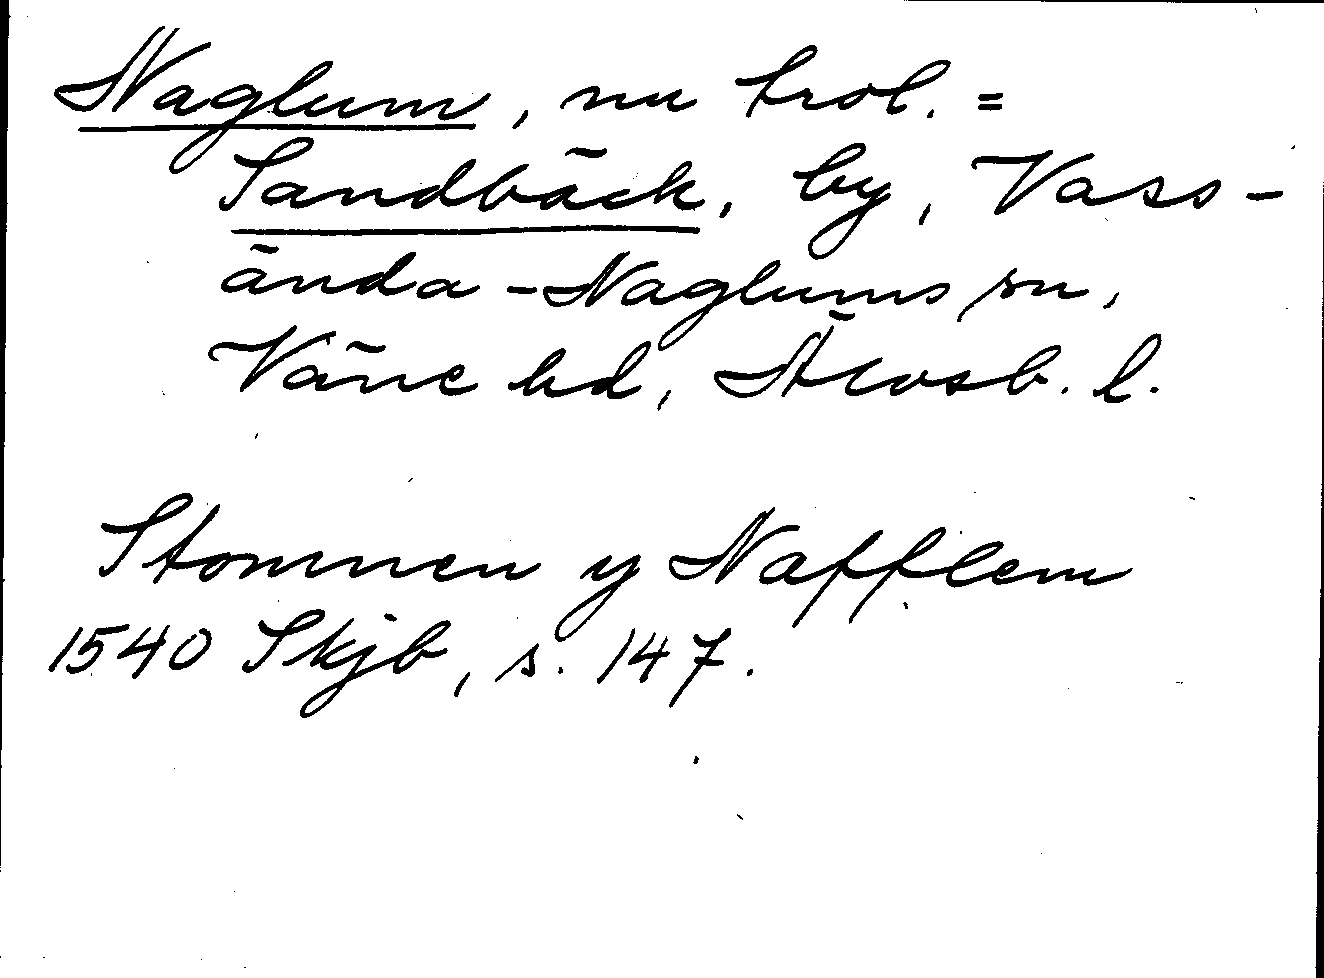 Naglum, nu trol. =
Sandbäck, by, Vass-
ända-Naglums sn,
Väne hd, Älvsb. l.
Stommen y Nafflem
1540 Skjb, s. 147.